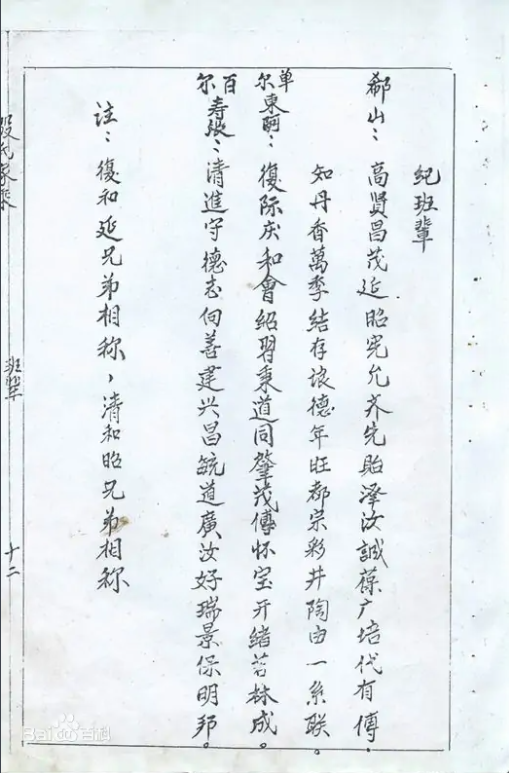 纪班辈
郗山：高賢昌茂延昭宪允齐先贻澤汝誠葆广培代有傅.
知丹香萬季结存浪德年旺都宗彩井陶由一系联。
单尔東阿：復际庆和會绍習秉道同肇茂傅怀宝开绪若林成。
百尔寿张：清進守德志向善建兴昌毓道廣汝好瑞景保明邦。
注：復和延兄弟相称，清和昭兄弟相称
班辈
十二
Bai百科